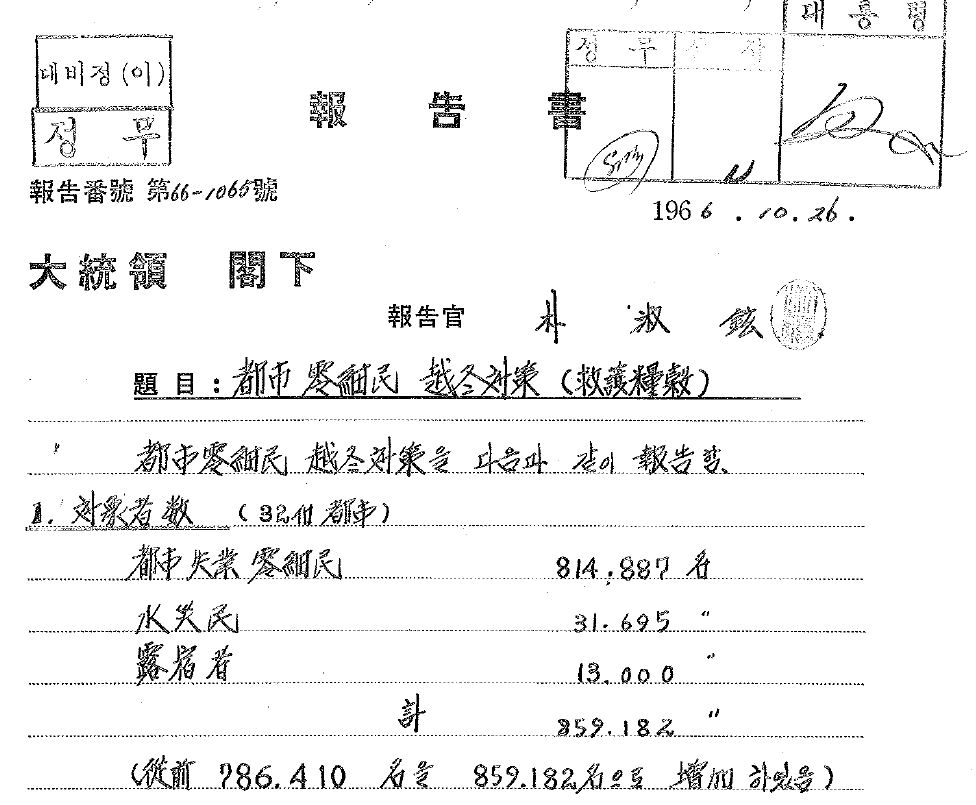 대통령
정무
대비정(이)
정무
報告書
報告番號 第66-1065號
1966.10.26.
大統領 閣下
報告官 朴淑鉉
題目: 都市零細民 越冬対策 (救護糧穀)
都市零細民 越冬対策을 다음과 같이 報告함.
1. 対象者数 (32個 都市)
都市失業零細民 814.887 名
水災民 31.695 〃
露宿者 13.000 〃
計 859.182 〃
(從前 786.410 名을 859.182名으로 增加 하였음)